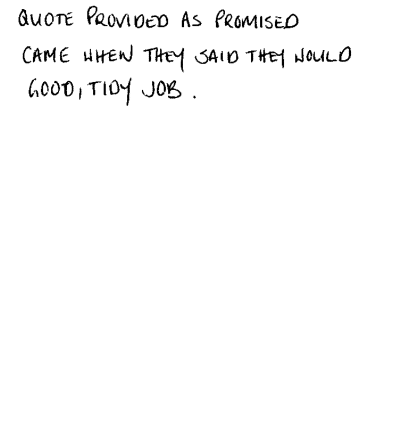 QUOTE PROVIDED AS PROMISED
CAME WHEN THEY SAID THEY WOULD
GOOD, TIDY JOB.